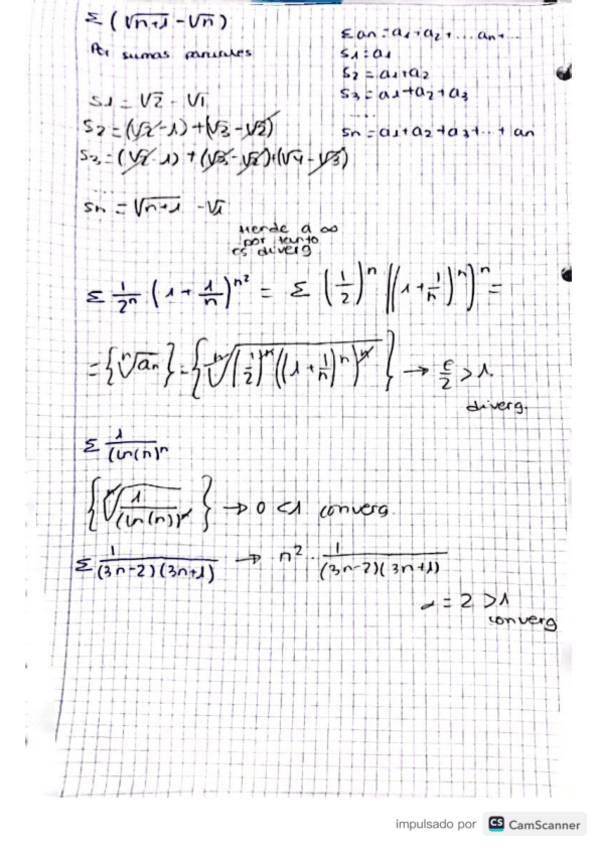 Σ (√n+1 - √n)
Por sumas parciales
Σ an = a1 + a2 + ... an + ...
S1 = a1
S2 = a1 + a2
S3 = a1 + a2 + a3
.....
Sn = a1 + a2 + a3 + ... + an
S1 = √2 - √1
S2 = (√2 - 1) + (√3 - √2)
S3 = (√2 - 1) + (√3 - √2) + (√4 - √3)
....
Sn = √n+1 - √1
tiende a ∞
por tanto
es diverg
Σ 1/2^n (1 + 1/n)^n^2 = Σ (1/2)^n ((1 + 1/n)^n)^n =
= {ⁿ√an} = {ⁿ√(1/2)^n ((1 + 1/n)^n)^n} → e/2 > 1.
diverg.
Σ 1/(ln(n)^n
{ⁿ√1/(ln(n))^n} → 0 < 1 converg.
Σ 1/(3n-2)(3n+1) → n^2 .. 1/(3n-2)(3n+1)
α = 2 > 1
converg
impulsado por CS CamScanner